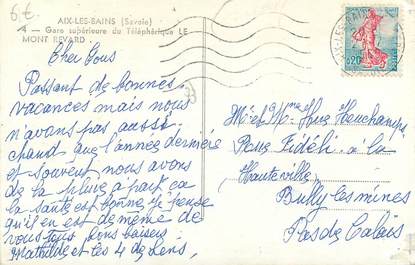 6€
AIX-LES-BAINS (Savoie)
4 - Gare supérieure du Téléphérique LE
MONT REVARD
Cher Tous
Passent de bonnes
vacances mais nous
n'avons pas aussi
chaud que l'année dernière
et souvent nous avons
de la pluie a part ça
la santé est bonne je pense
qu'il en est de même de
vous tous bons baisers
Mathilde et les 4 de Lens,
Mr et Mme
Rue Fidéli a la
Hauteville
Bully les mines
Pas de Calais
AIX-LES-BAINS
0,20